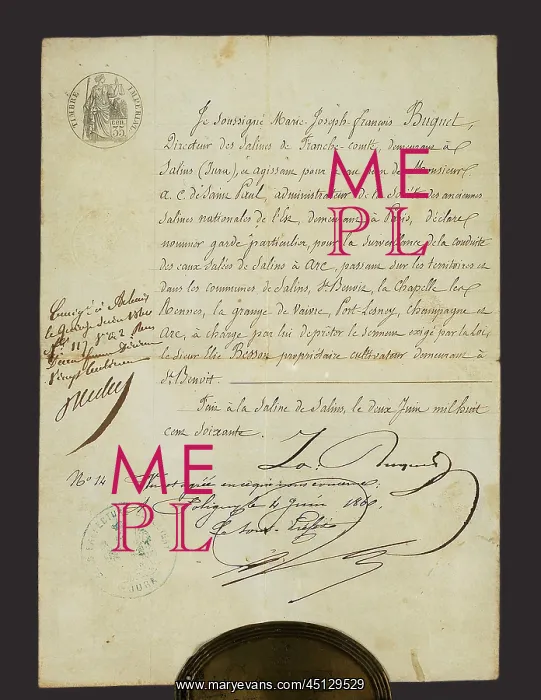 TIMBRE IMPERIAL
35
Je soussigné Marie-Joseph-François Buquet,
Directeur des Salines de Franche-comté, demeurant à
Salins (Jura), et agissant pour et au nom de Monsieur
A. C. de Saint Paul, administrateur de la Société des anciennes
Salines nationales de l'Est, demeurant à Paris, déclare
nommer garde particulier, pour la surveillance de la conduite
des eaux salées de Salins à Arc, passant sur les territoires et
dans les communes de Salins, St Benoit, la Chapelle les
Rennes, la grange de Vaivre, Port-Lesney, Champagne et
Arc, à charge par lui de prêter le serment exigé par la Loi,
le Sieur Elie Besson propriétaire cultivateur demeurant à
St Benoit.
Fait à la Saline de Salins, le deux Juin mil huit
cent soixante.
Enregistré à
le Juin
Nº 14
Vu et agréé en ce qui nous concerne.
Poligny le 4 Juin 1860.
Le Sous-Préfet
JURA
ME
PL
ME
PL
www.maryevans.com/45129529